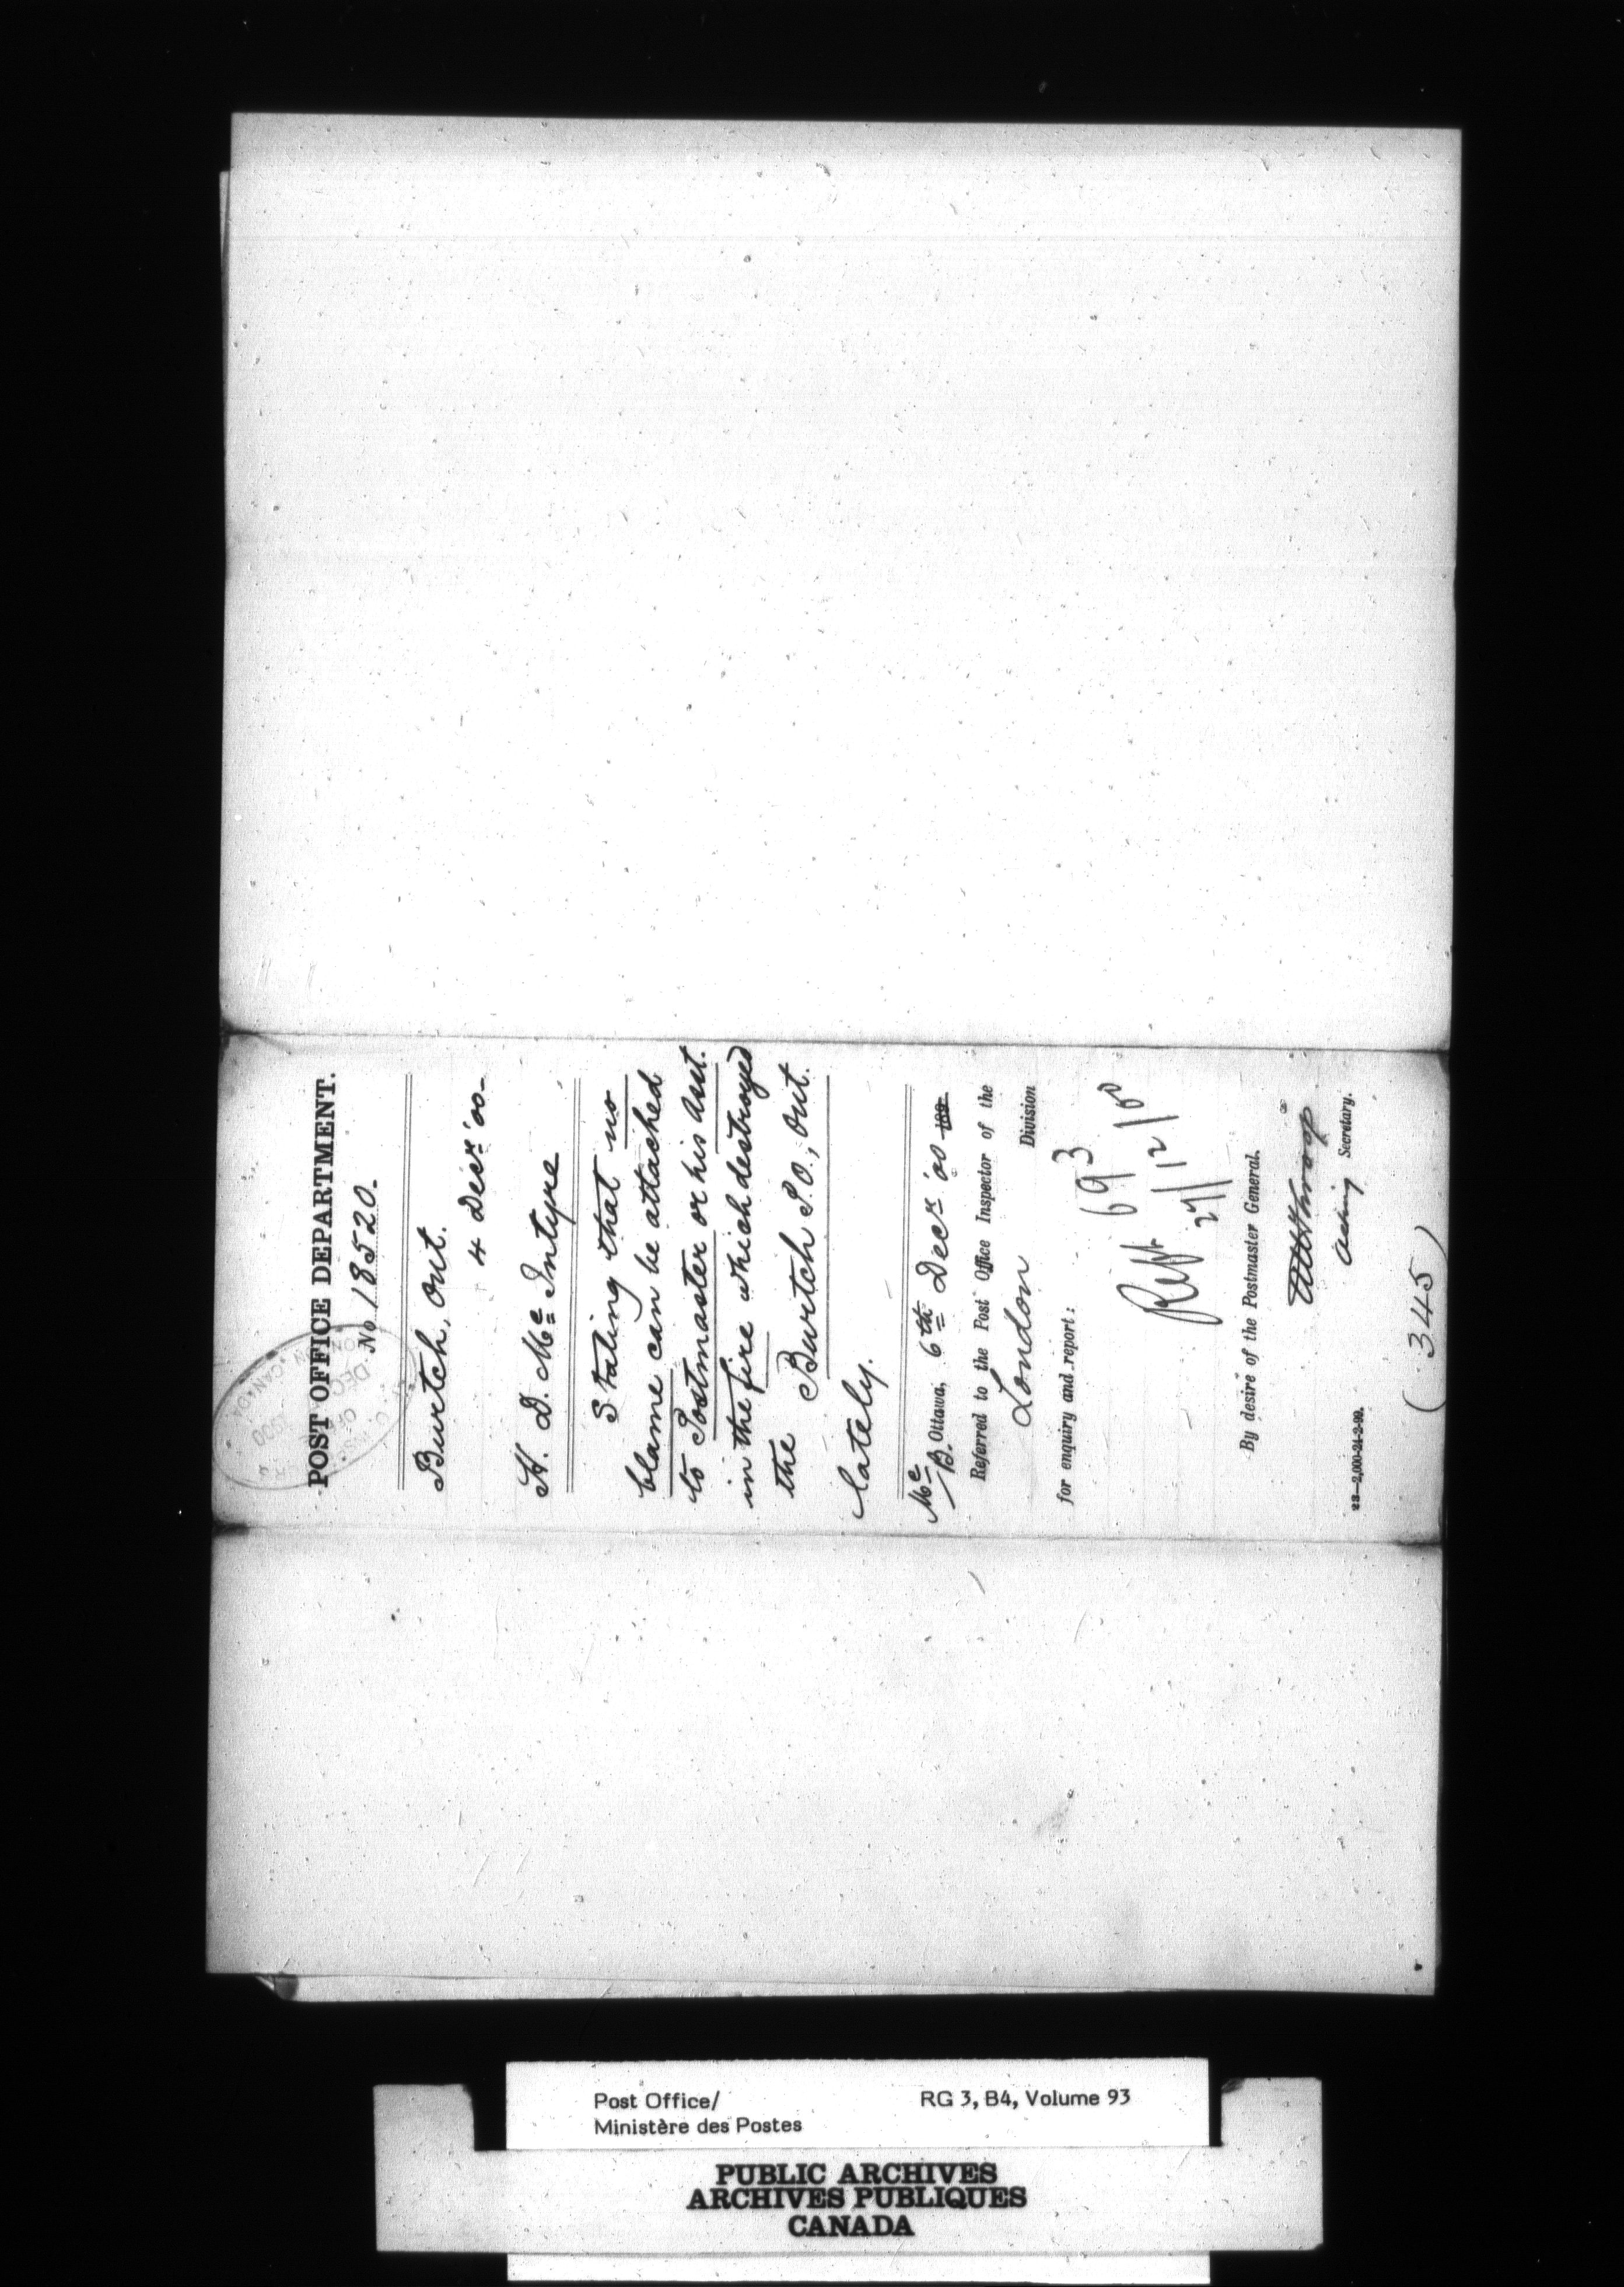 POST OFFICE DEPARTMENT.
No. 18520.
Burtch, Ont.
4 Decr. '00-
H. D. Mc Intyre
Stating that no
blame can be attached
to Postmaster or his Asst.
in the fire which destroyed
the Burtch P.O., Ont.
lately.
Mc B. Ottawa, 6th Decr '00 189
Referred to the Post Office Inspector of the
London Division
for enquiry and report:
Rept 693
27/12/00
By desire of the Postmaster General.
Acting Secretary.
23—2,000-24-2-99.
(345)
Post Office/
Ministère des Postes
RG 3, B4, Volume 93
PUBLIC ARCHIVES
ARCHIVES PUBLIQUES
CANADA